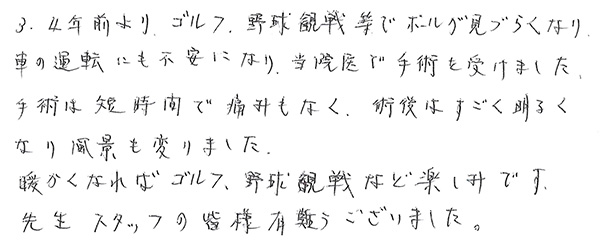 3.4年前より、ゴルフ、野球観戦等でボールが見づらくなり、
車の運転にも不安になり、当院医で手術を受けました、
手術は短時間で痛みもなく、術後はすごく明るく
なり風景も変りました、
暖かくなればゴルフ、野球観戦など楽しみです、
先生スタッフの皆様有難うございました。